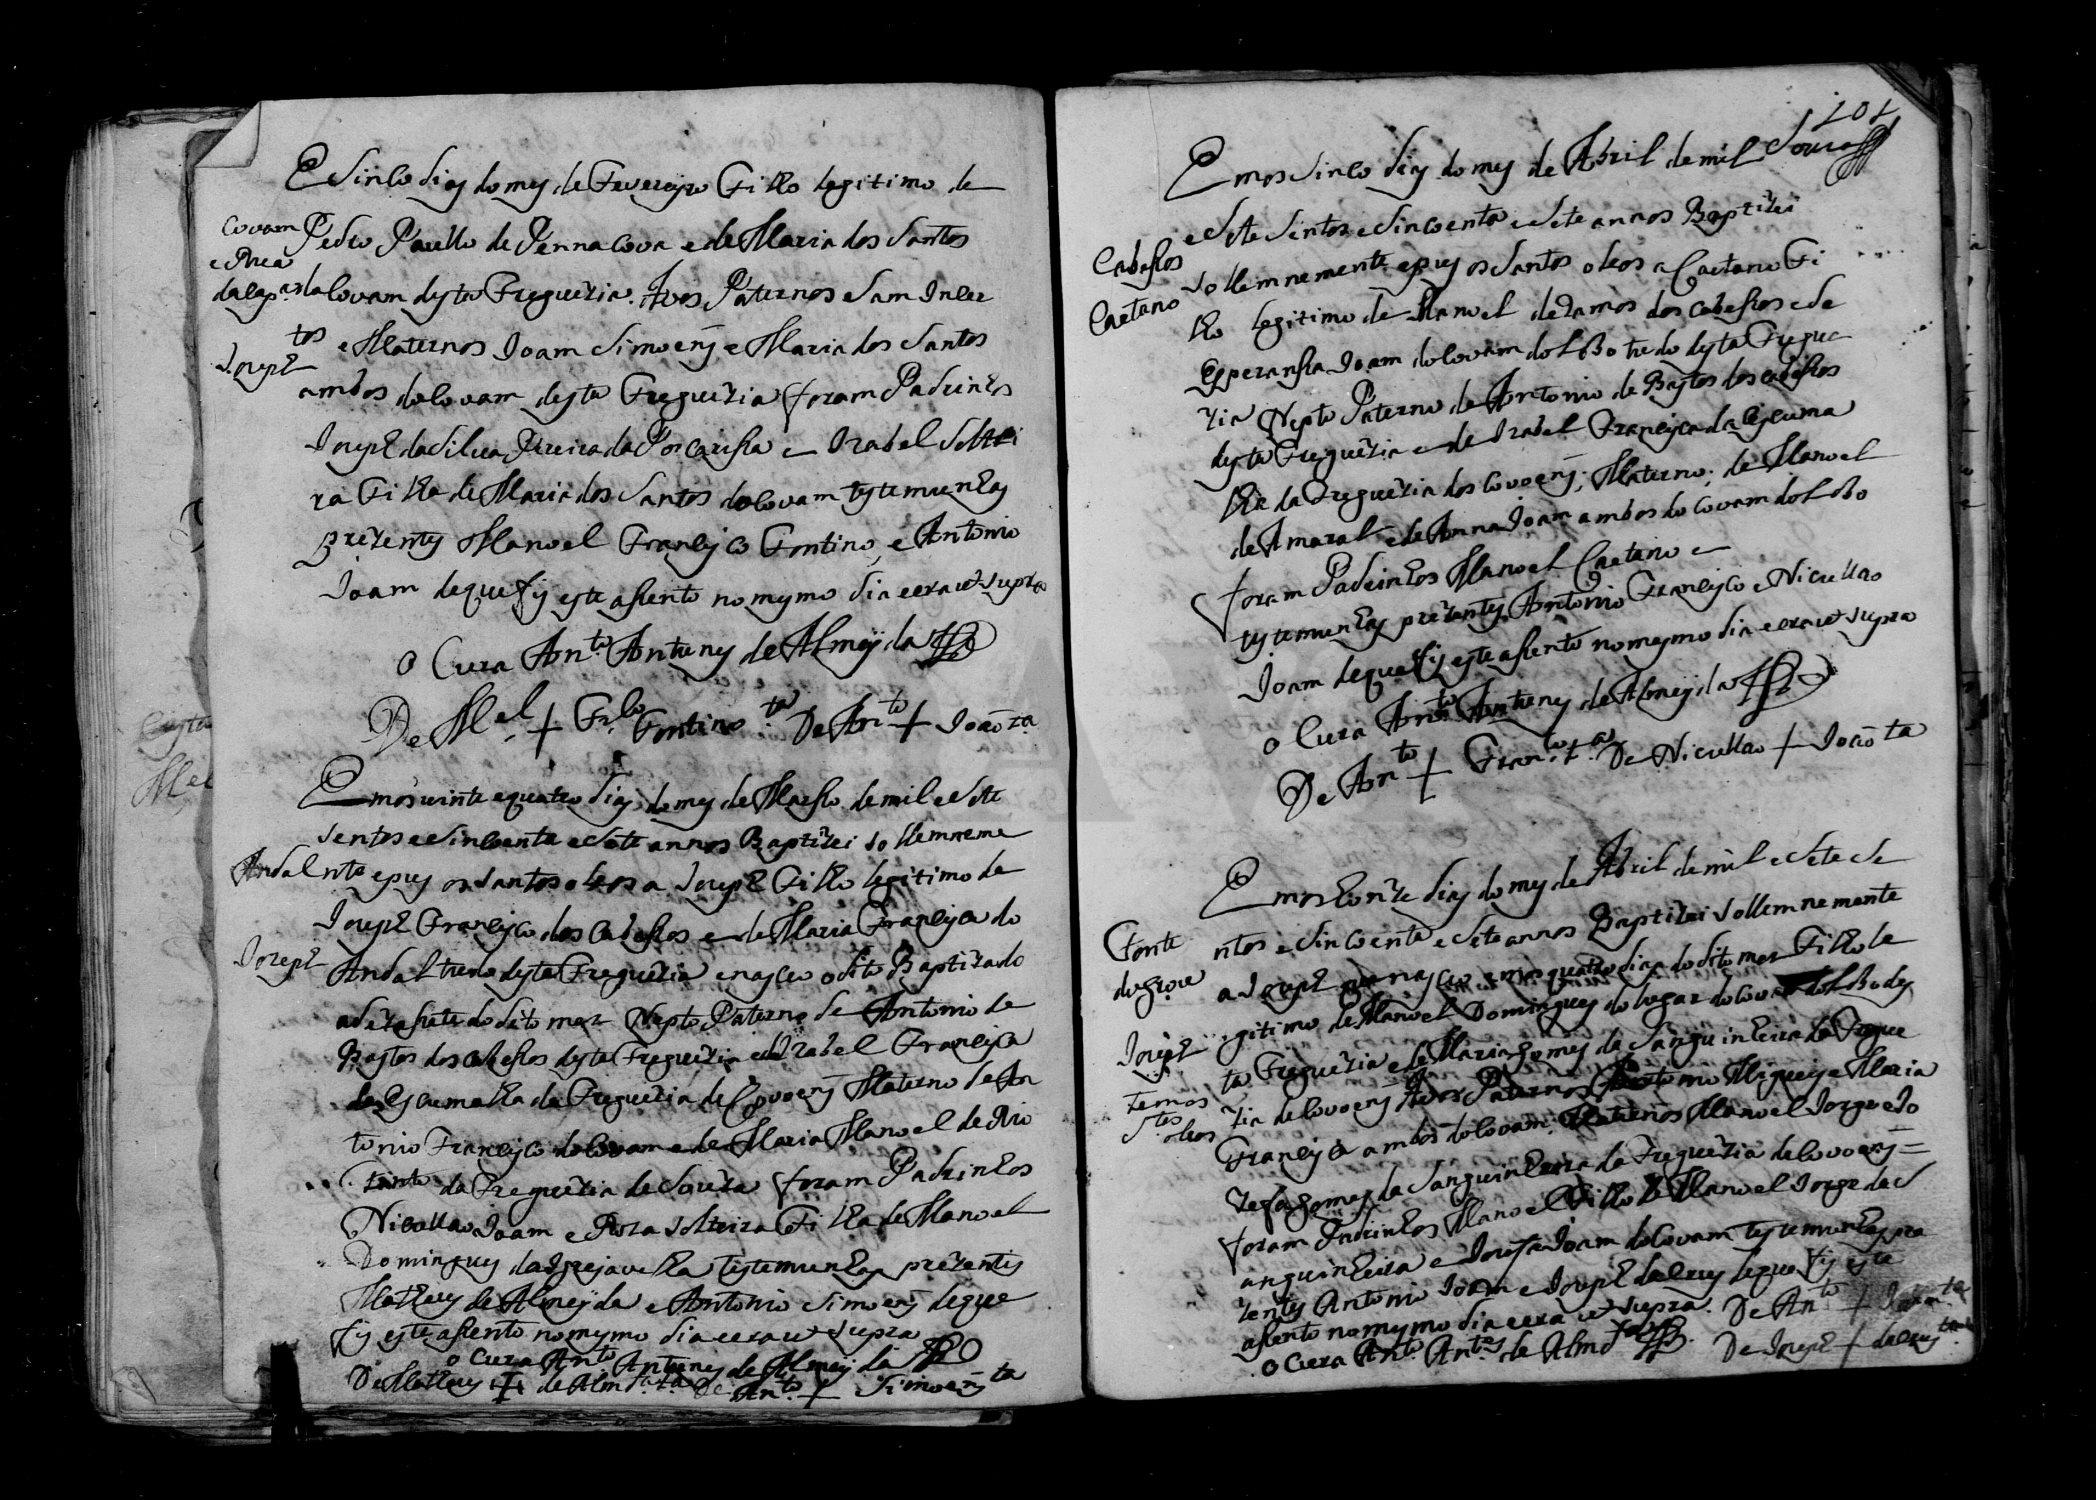 E sinco dias do mes de Fevereyro Filho legitimo de
Covam Pedro Paullo de Pennacova e de Maria dos Santos
do Covam desta Freguezia. Avos Paternos sam Incer
tos e Maternos Joam Simoens e Maria dos Santos
Joseph
ambos do Covam desta Freguezia foram Padrinhos
Joseph da Silva Pereira da e Izabel soltei
ra Filha de Maria dos Santos do Covam testemunhas
prezentes Manoel Francisco Fontino e Antonio
Joam de que fis este asento no mesmo dia e era ut supra
O Cura Anto Antunes de Almeijda
De Mel + Frco Fontino ta De Anto + Joaõ ta
Em os vinte e quatro dias do mes de Marso de mil e sete
sentos e sincoenta e sete annos Baptizei sollemneme
Andal nte e pus os santos oleos a Joseph Filho legitimo de
Joseph Francisco dos Cabesos e de Maria Francisca do
Joseph Andal tudo desta Freguezia e nasceo o dito Baptizado
a dezasete do dito mez Nepto Paterno de Antonio de
Bastos dos Cabesos desta Freguezia e de Izabel Francisca
da Escumalha da Freguezia de Covoens Materno de An
tonio Francisco do Covam e de Maria Manoel de Rio
Tinto da Freguezia de Souza foram Padrinhos
Nicullao Joam e Roza solteira Filha de Manoel
Domingues da Igrejavelha testemunhas prezentes
Matheus de Almeijda e Antonio Simoens de que
fis este asento no mesmo dia e era ut supra
o Cura Anto Antunes de Almeijda
De Matheus + de Almda ta De Anto + Simoens ta
101
Em os sinco dias do mes de Abril de mil
e sete sentos e sincoenta e sete annos Baptizei
Cabesos sollemnemente e pus os santos oleos a Caetano Fi
Caetano lho legitimo de Manoel de Ramos dos Cabesos e de
Esperansa Joam do Covam do Lobo tudo desta Fregue
zia Nepto Paterno de Antonio de Bastos dos Cabesos
desta Freguezia e de Izabel Francisca da Escuma
lha da Freguezia dos Covoens; Materno; de Manoel
de Amaral e de Anna Joam ambos do Covam do Lobo
foram Padrinhos Manoel Caetano e
testemunhas prezentes Antonio Francisco e Nicullao
Joam de que fis este asento no mesmo dia e era ut supra
o Cura Anto Antunes de Almeijda
De Anto + Franco ta De Nicullao + Joaõ ta
Em os honze dias do mes de Abril de mil e sete se
Fonte ntos e sincoenta e sete annos Baptizei sollemnemente
a Joseph que nasceo em os quatro dias do dito mes Filho le
Joseph gitimo de Manoel Domingues do lugar do Covam do Lobo des
ta Freguezia e de Maria Gomes de Sanguinheira da Fregue
zia de Covoens Avos Paternos Antonio Migueis e Maria
Stos oleos
Francisca ambos do Covam; Maternos Manoel Jorge e Jo
zefa Gomes da Sanguinheira da Freguezia de Covoens =
foram Padrinhos Manoel Filho de Manoel Jorge da S
anguinheira e Josefa Joam do Covam testemunhas pre
zentes Antonio Joam e Joseph da Crus de que fis este
asento no mesmo dia e era ut supra. De Anto + Joam ta
o Cura Anto Antes de Almda De Joseph + da Crus ta